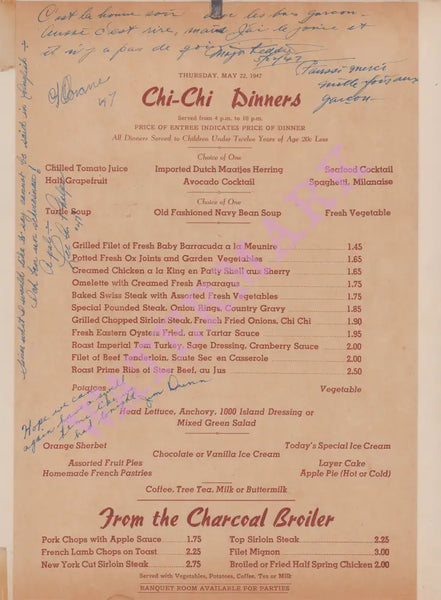 C'est la bonne soir avec les bas garcon.
Aussi c'est rire, mais j'ai le joure et
il n'y a pas de
5/22/47
Paussi merci
mille fois aux
garcon
Crane
47
THURSDAY, MAY 22, 1947
Chi-Chi Dinners
Served from 4 p.m. to 10 p.m.
PRICE OF ENTREE INDICATES PRICE OF DINNER
All Dinners Served to Children Under Twelve Years of Age 20c Less
Choice of One
Chilled Tomato Juice Imported Dutch Maatjes Herring Seafood Cocktail
Half Grapefruit Avocado Cocktail Spaghetti, Milanaise
Choice of One
Turtle Soup Old Fashioned Navy Bean Soup Fresh Vegetable
Grilled Filet of Fresh Baby Barracuda a la Meuniere 1.45
Potted Fresh Ox Joints and Garden Vegetables 1.65
Creamed Chicken a la King en Patty Shell aux Sherry 1.65
Omelette with Creamed Fresh Asparagus 1.75
Baked Swiss Steak with Assorted Fresh Vegetables 1.75
Special Pounded Steak, Onion Rings, Country Gravy 1.85
Grilled Chopped Sirloin Steak, French Fried Onions, Chi Chi 1.90
Fresh Eastern Oysters Fried, aux Tartar Sauce 1.95
Roast Imperial Tom Turkey, Sage Dressing, Cranberry Sauce 2.00
Filet of Beef Tenderloin, Saute Sec en Casserole 2.00
Roast Prime Ribs of Steer Beef, au Jus 2.50
Potatoes Vegetable
Head Lettuce, Anchovy, 1000 Island Dressing or
Mixed Green Salad
Orange Sherbet Today's Special Ice Cream
Chocolate or Vanilla Ice Cream
Assorted Fruit Pies Layer Cake
Homemade French Pastries Apple Pie (Hot or Cold)
Coffee, Tree Tea, Milk or Buttermilk
From the Charcoal Broiler
Pork Chops with Apple Sauce 1.75 Top Sirloin Steak 2.25
French Lamb Chops on Toast 2.25 Filet Mignon 3.00
New York Cut Sirloin Steak 2.75 Broiled or Fried Half Spring Chicken 2.00
Served with Vegetables, Potatoes, Coffee, Tea or Milk
BANQUET ROOM AVAILABLE FOR PARTIES
Since what I would like to say cannot be said in English
Hope we can
again
Dunn